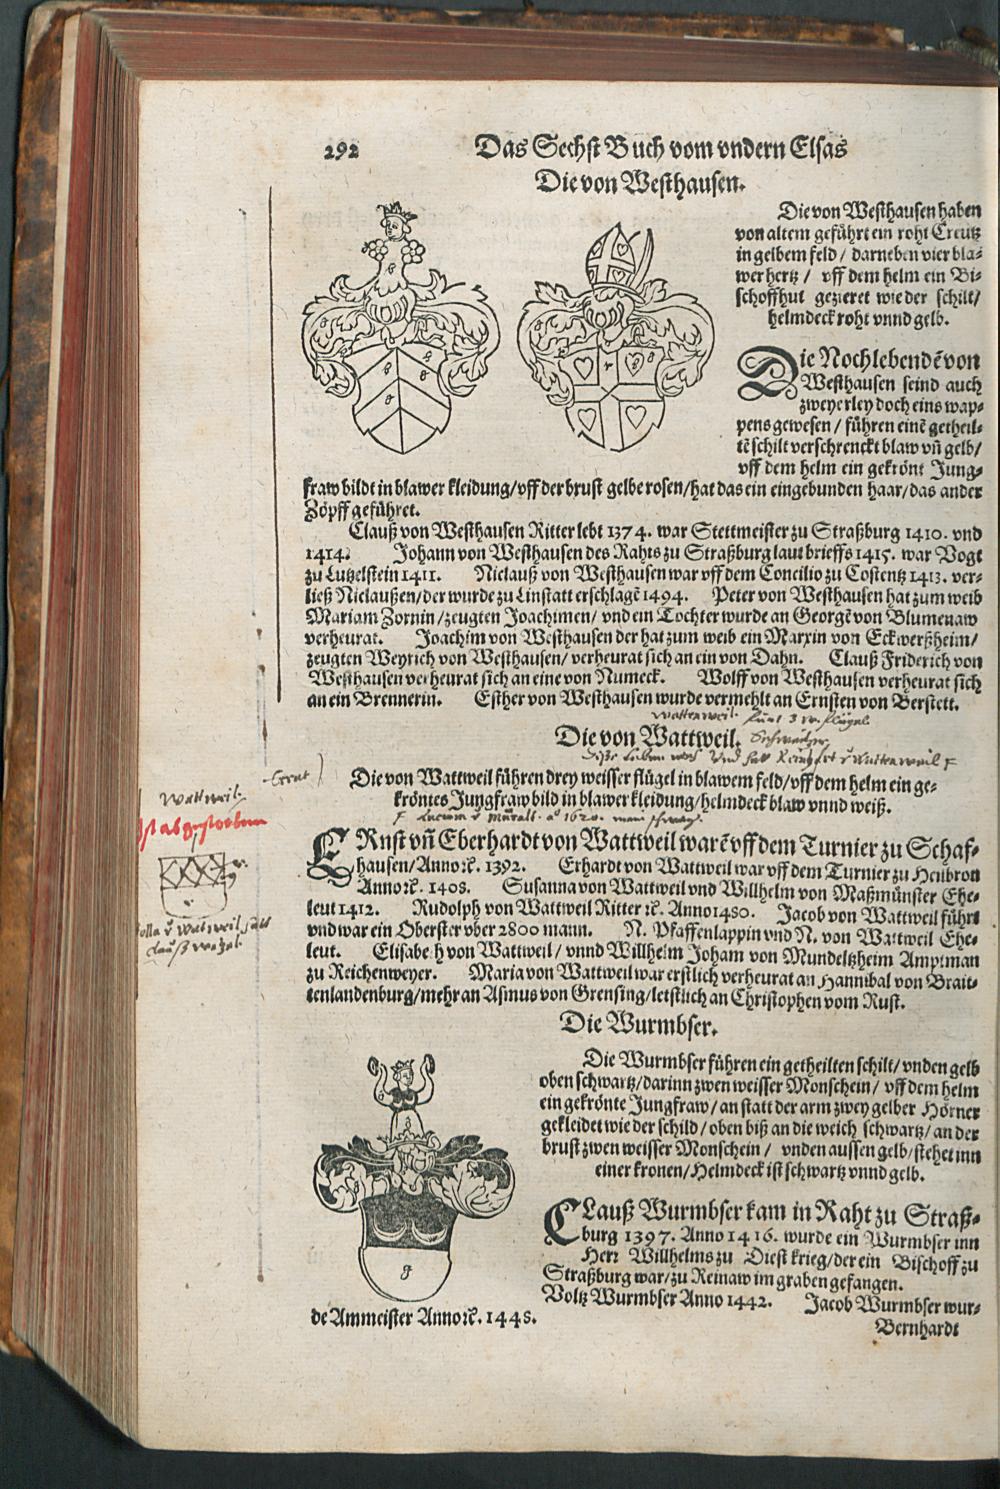 292
Das Sechst Buch vom vndern Elsas
Die von Westhausen.
Die von Westhausen haben
von altem geführt ein roht Creutz
in gelbem feld / darneben vier bla⸗
wer hertz / vff dem helm ein Bi⸗
schoffhut gezieret wie der schilt/
helmdeck roht vnnd gelb.
Die Nochlebendẽ von
Westhausen seind auch
zweyerley doch eins wap⸗
pens gewesen / führen einẽ getheil⸗
tẽ schilt verschrenckt blaw vñ gelb/
vff dem helm ein gekrönt Jung⸗
fraw bildt in blawer kleidung/vff der brust gelbe rosen/hat das ein eingebunden haar/das ander
Zöpff geführet.
Clauß von Westhausen Ritter lebt 1374. war Stettmeister zu Straßburg 1410. vnd
1414. Johann von Westhausen des Rahts zu Straßburg laut brieffs 1415. war Vogt
zu Lutzelstein 1411. Niclauß von Westhausen war vff dem Concilio zu Costentz 1413. ver⸗
ließ Niclaußen/der wurde zu Linstatt erschlagẽ 1494. Peter von Westhausen hat zum weib
Mariam Zornin/zeugten Joachimen/ vnd ein Tochter wurde an Georgẽ von Blumenaw
verheurat. Joachim von Westhausen der hat zum weib ein Marxin von Eckwerßheim/
zeugten Weyrich von Westhausen/ verheurat sich an ein von Dahn. Clauß Friderich von
Westhausen verheurat sich an eine von Numeck. Wolff von Westhausen verheurat sich
an ein Brennerin. Esther von Westhausen wurde vermehlt an Ernsten von Berstett.
Wattenweil.
Die von Wattweil.
Die von Wattweil führen drey weisser flügel in blawem feld/vff dem helm ein ge⸗
kröntes Jungfraw bild in blawer kleidung/helmdeck blaw vnnd weiß.
Wattweil.
Ist abgestorben
ERnst vñ Eberhardt von Wattweil warẽ vff dem Turnier zu Schaf⸗
hausen/Anno ꝛc. 1392. Erhardt von Wattweil war vff dem Turnier zu Heilbron
Anno ꝛc. 1408. Susanna von Wattweil vnd Willhelm von Maßmünster Ehe⸗
leut 1412. Rudolph von Wattweil Ritter ꝛc. Anno 1480. Jacob von Wattweil führt
vnd war ein Oberster vber 2800 mann. N. Pfaffenlappin vnd N. von Wattweil Ehe⸗
leut. Elisabeh von Wattweil / vnnd Willhelm Joham von Mundeltzheim Amptman
zu Reichenweyer. Maria von Wattweil war erstlich verheurat an Hannibal von Brait⸗
tenlandenburg/mehr an Asmus von Grensing/letstlich an Christophen vom Rust.
Die Wurmbser.
Die Wurmbser führen ein getheilten schilt/ vnden gelb
oben schwartz/darinn zwen weisser Monschein / vff dem helm
ein gekrönte Jungfraw / an statt der arm zwey gelber Hörner
gekleidet wie der schild / oben biß an die weich schwartz/ an der
brust zwen weisser Monschein / vnden aussen gelb/stehet inn
einer kronen/Helmdeck ist schwartz vnnd gelb.
CLauß Wurmbser kam in Raht zu Straß⸗
burg 1397. Anno 1416. wurde ein Wurmbser inn
Herr Willhelms zu Diest krieg/der ein Bischoff zu
Straßburg war/zu Reinaw im graben gefangen.
Voltz Wurmbser Anno 1442. Jacob Wurmbser wur⸗
de Ammeister Anno ꝛc. 1448.
Bernhardt